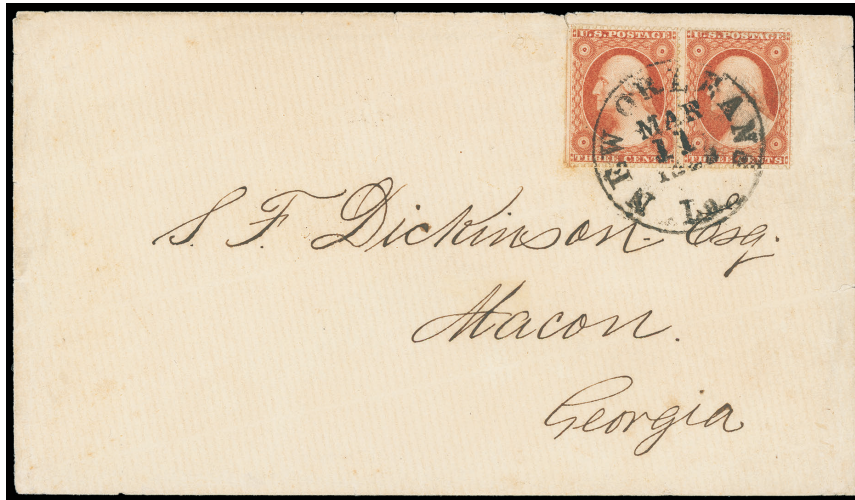 U.S. POSTAGE U.S. POSTAGE
THREE CENTS
NEW ORLEANS
MAR
11
La.
S. F. Dickinson. Esq.
Macon.
Georgia